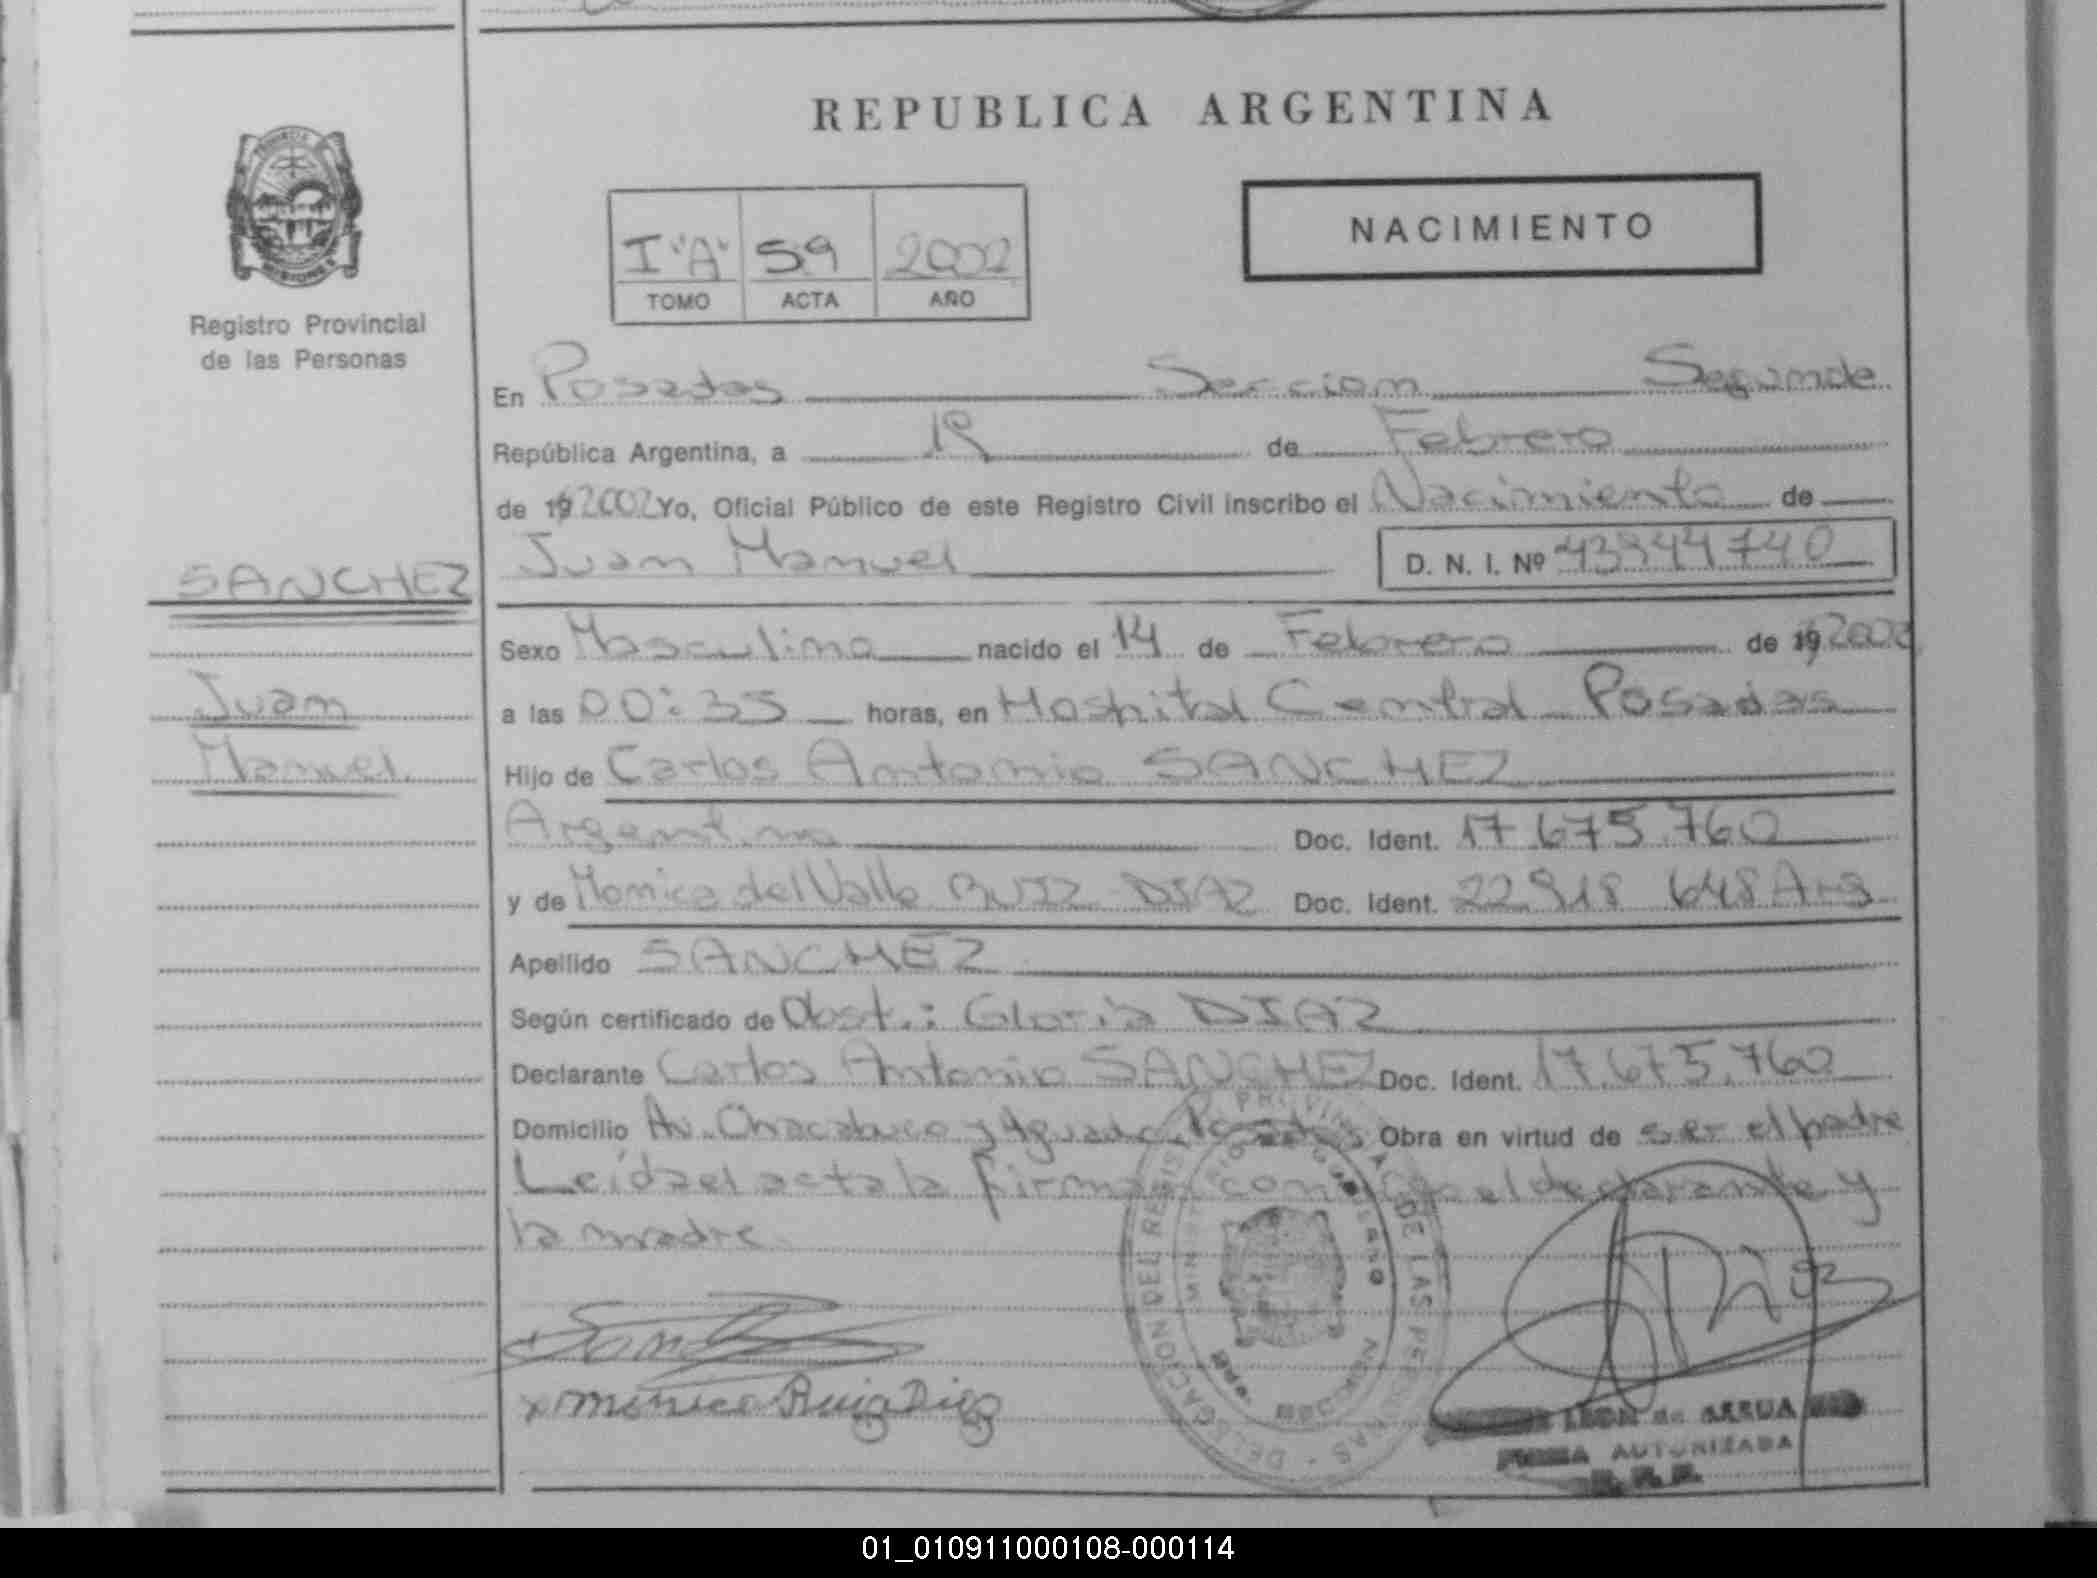 REPUBLICA ARGENTINA
NACIMIENTO
I "A" 59 2002
TOMO ACTA AÑO
Registro Provincial
de las Personas
En Posadas Seccion Segunda
República Argentina, a 19 de Febrero
de 19 2002 Yo, Oficial Público de este Registro Civil inscribo el Nacimiento de
Juan Manuel D. N. I. Nº 43944740
SANCHEZ
Juan
Manuel
Sexo Masculino nacido el 14 de Febrero de 19 2002
a las 00:35 horas, en Hospital Central Posadas
Hijo de Carlos Antonio SANCHEZ
Argentino Doc. Ident. 17.675.760
y de Monica del Valle RUIZ DIAZ Doc. Ident. 22.918 648 Arg
Apellido SANCHEZ
Según certificado de Obst.: Gloria DIAZ
Declarante Carlos Antonio SANCHEZ Doc. Ident. 17.675.760
Domicilio Av. Chacabuco y Aguado Posadas Obra en virtud de ser el padre
Leída el acta la firman conmigo el declarante y
la madre.
x Monica Ruiz Diaz
LEON de ARRUA
FIRMA AUTORIZADA
R. P. P.
01_010911000108-000114